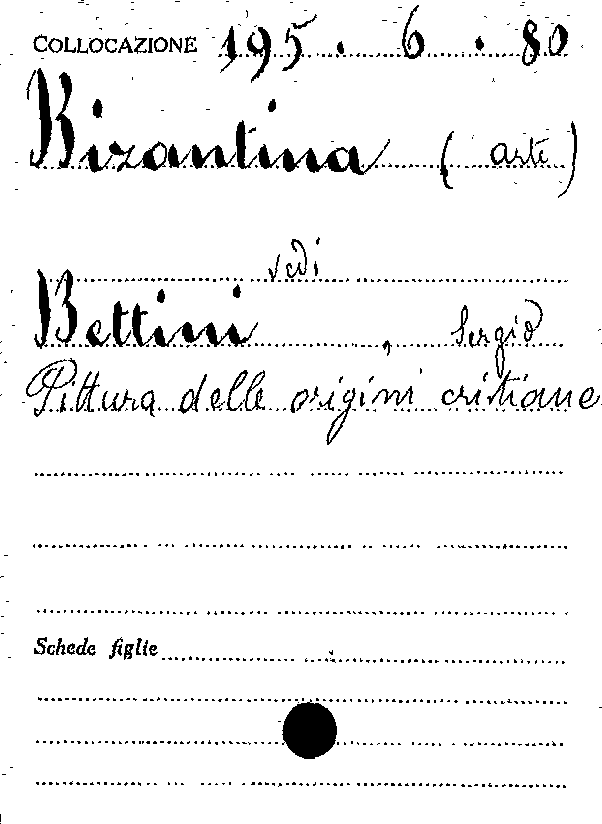 COLLOCAZIONE 195. 6. 80
Bizantina (arte)
vedi
Bettini, Sergio
Pittura delle origini cristiane
Schede figlie